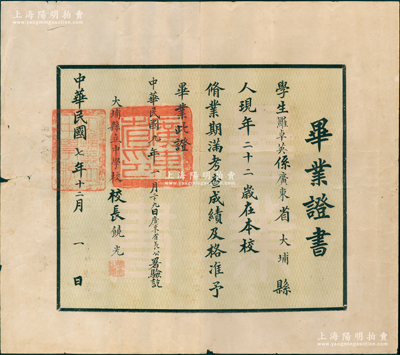 上海阳明拍卖
畢業證書
學生鄺卓英係廣東省大埔縣
人現年二十二歲在本校
脩業期滿考查成績及格准予
畢業此證
中華民國九年一月十九日廣東省長公署驗訖
大埔縣立中學校校長饒光
中華民國七年十二月一日
上海阳明拍卖